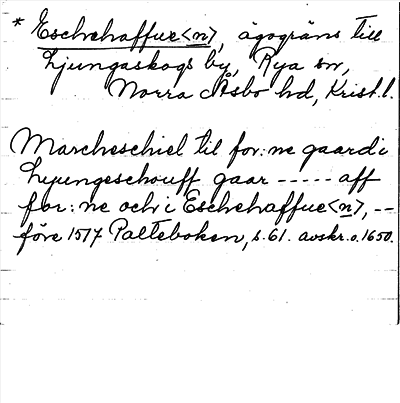 * Eschehaffue<n>, ägogräns till
Ljungaskogs by, Rya sn,
Norra Åsbo hd, Krist.l.
Marcheschiel til for:ne gaard i
Liyungeschouff gaar ----- aff
for:ne och i Eschehaffue<n>, --
före 1517 Palteboken, s. 61. avskr. o. 1650.